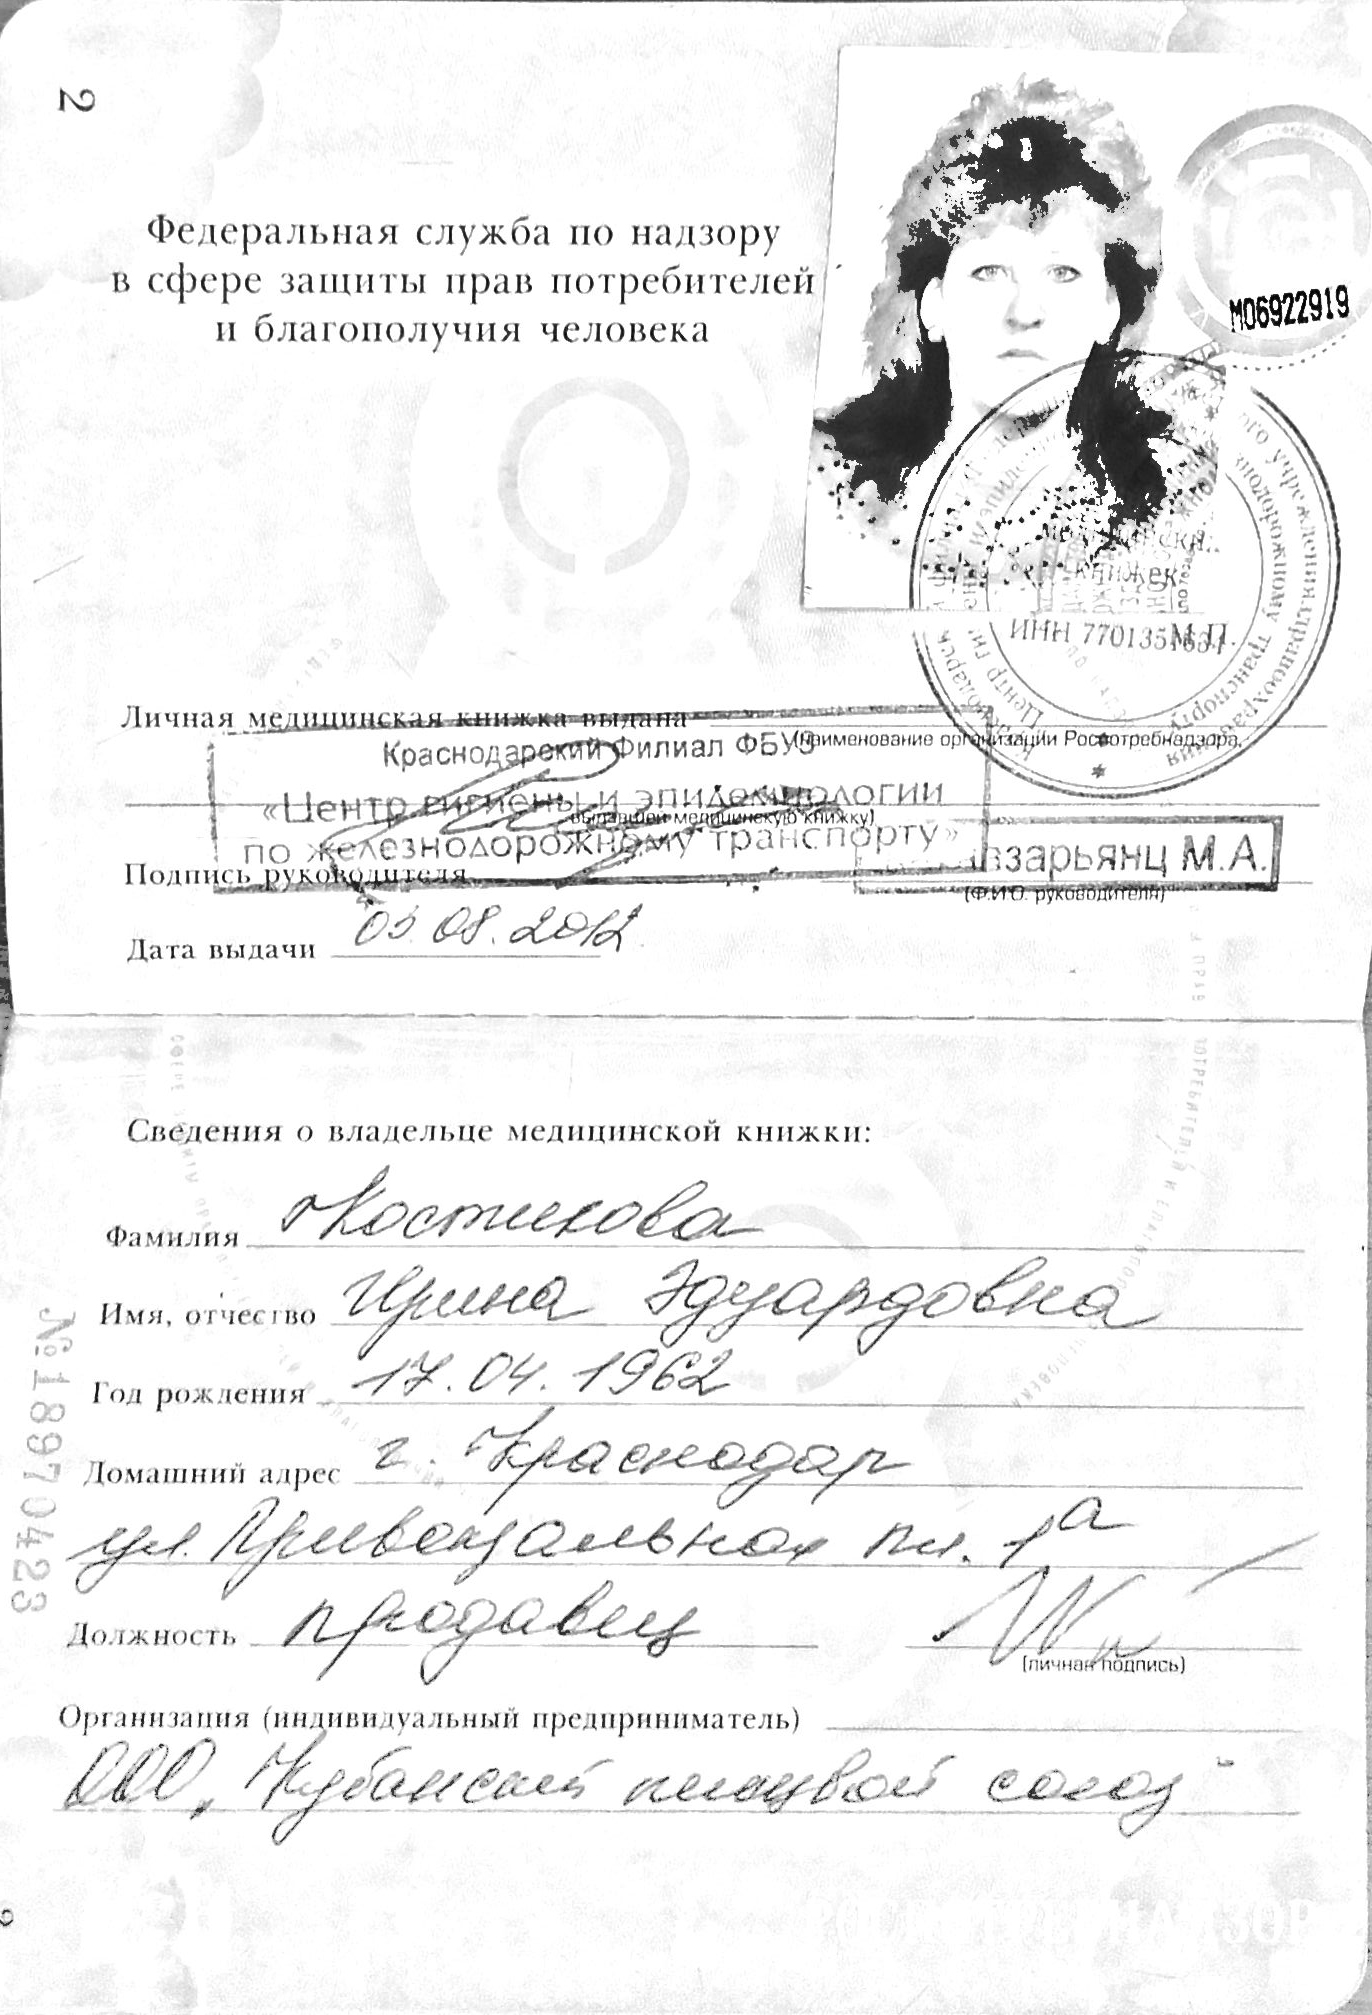 2
Федеральная служба по надзору
в сфере защиты прав потребителей
и благополучия человека
М06922919
медицинских
книжек
ИНН 7701351634
М.П.
Личная медицинская книжка выдана
Краснодарский Филиал ФБУЗ
(наименование организации Роспотребнадзора,
«Центр гигиены и эпидемиологии
выдавшей медицинскую книжку)
по железнодорожному транспорту»
Подпись руководителя
зарьянц М.А.
(Ф.И.О. руководителя)
Дата выдачи 03.08.2012
Сведения о владельце медицинской книжки:
Фамилия Костикова
Имя, отчество Ирина Эдуардовна
Год рождения 17.04.1962
Домашний адрес г. Краснодар
ул. Привокзальная пл. 1а
Должность продавец
(личная подпись)
Организация (индивидуальный предприниматель)
ООО "Кубанский пищевой союз"
№18970423